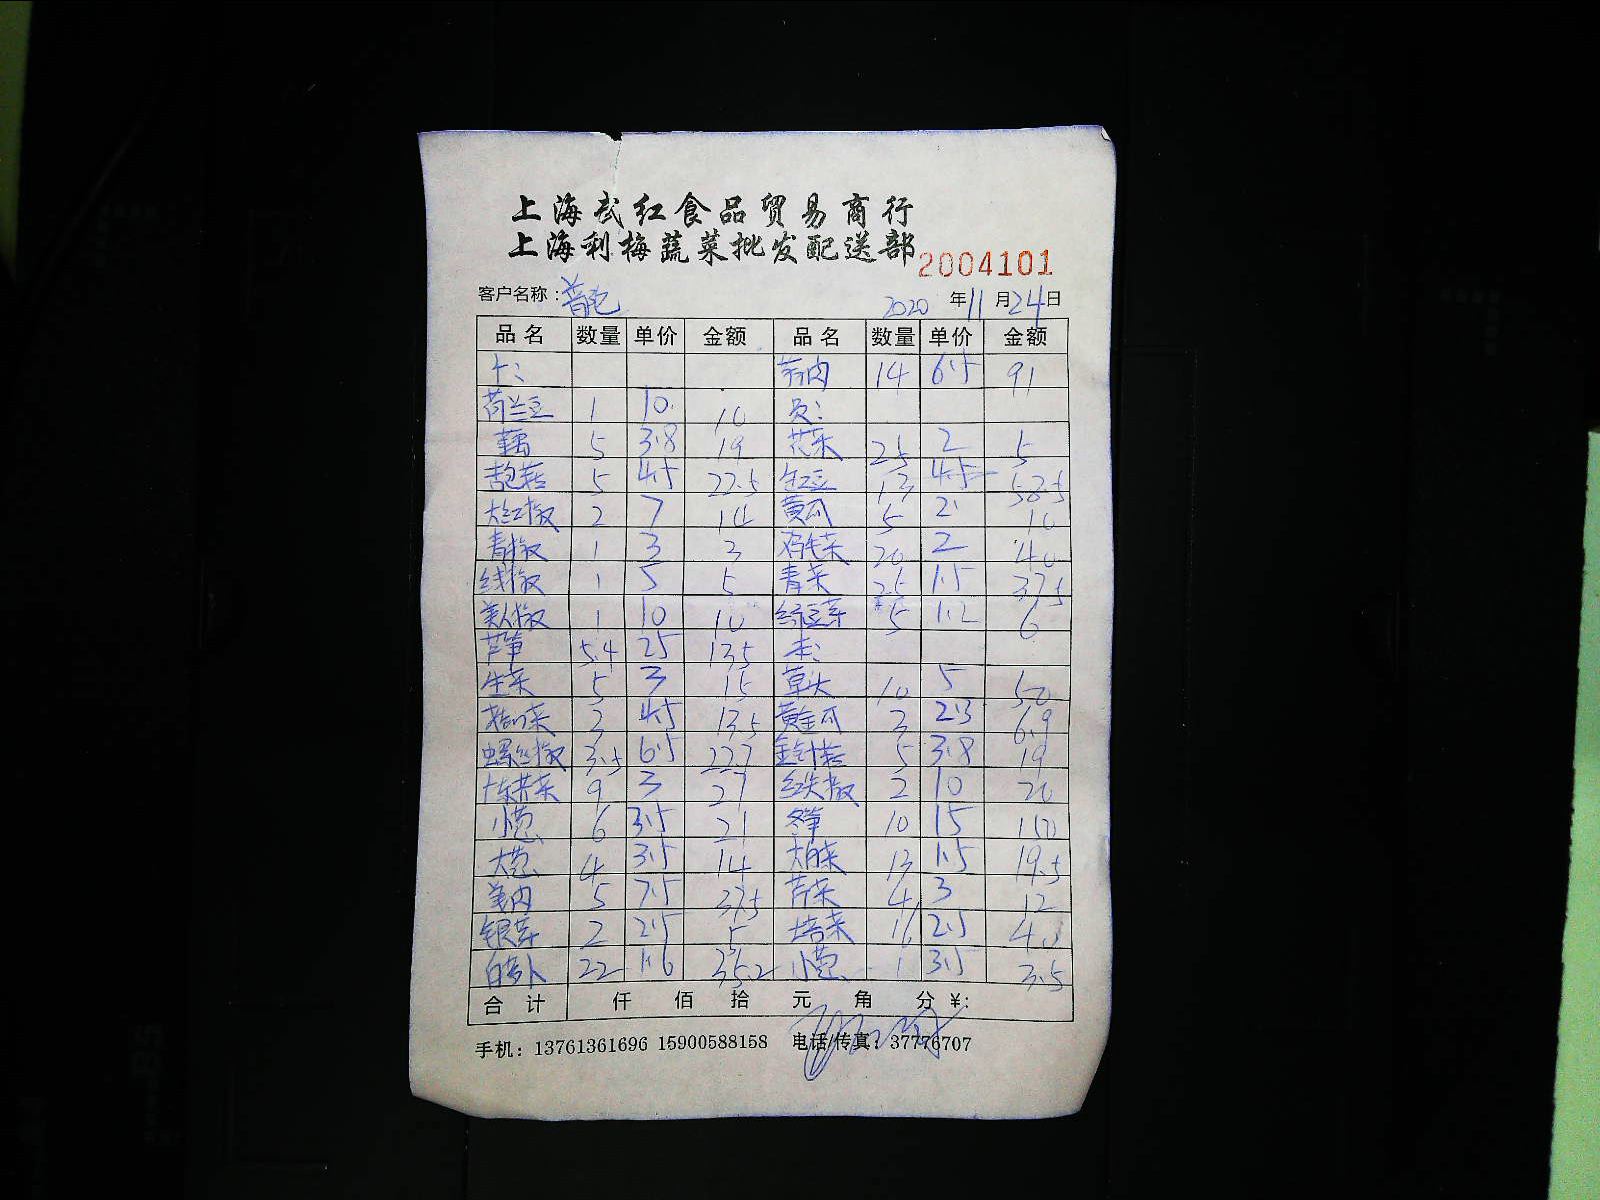 上海武红食品贸易商行
上海利梅蔬菜批发配送部
2004101
客户名称: 2020 年 11 月 24 日
品名 数量 单价 金额 品名 数量 单价 金额
14 6.5 91
荷兰豆 1 10 10
藕 5 3.8 19 花菜 25 2 5
5 4.5 22.5 13 4.5 58.5
大红椒 2 7 14 黄瓜 5 2 10
青椒 1 3 3 鸡毛菜 20 2 40
线椒 1 5 5 青菜 25 1.5 37.5
美人椒 1 10 10 绿豆芽 5 1.2 6
芦笋 5.4 25 135 本:
生菜 5 3 15 草头 10 5 50
3 4.5 13.5 黄金瓜 3 2.3 6.9
螺丝椒 3.5 6.5 22.7 金针菇 5 3.8 19
9 3 27 红尖椒 2 10 20
小葱 6 3.5 21 冬笋 10 15 150
大葱 4 3.5 14 大白菜 13 1.5 19.5
5 7.5 37.5 芹菜 4 3 12
银芽 2 2.5 5 2.5
白萝卜 22 1.6 35.2 小葱 1 3.5 3.5
合计 仟 佰 拾 元 角 分 ¥:
手机: 13761361696 15900588158 电话/传真: 37776707